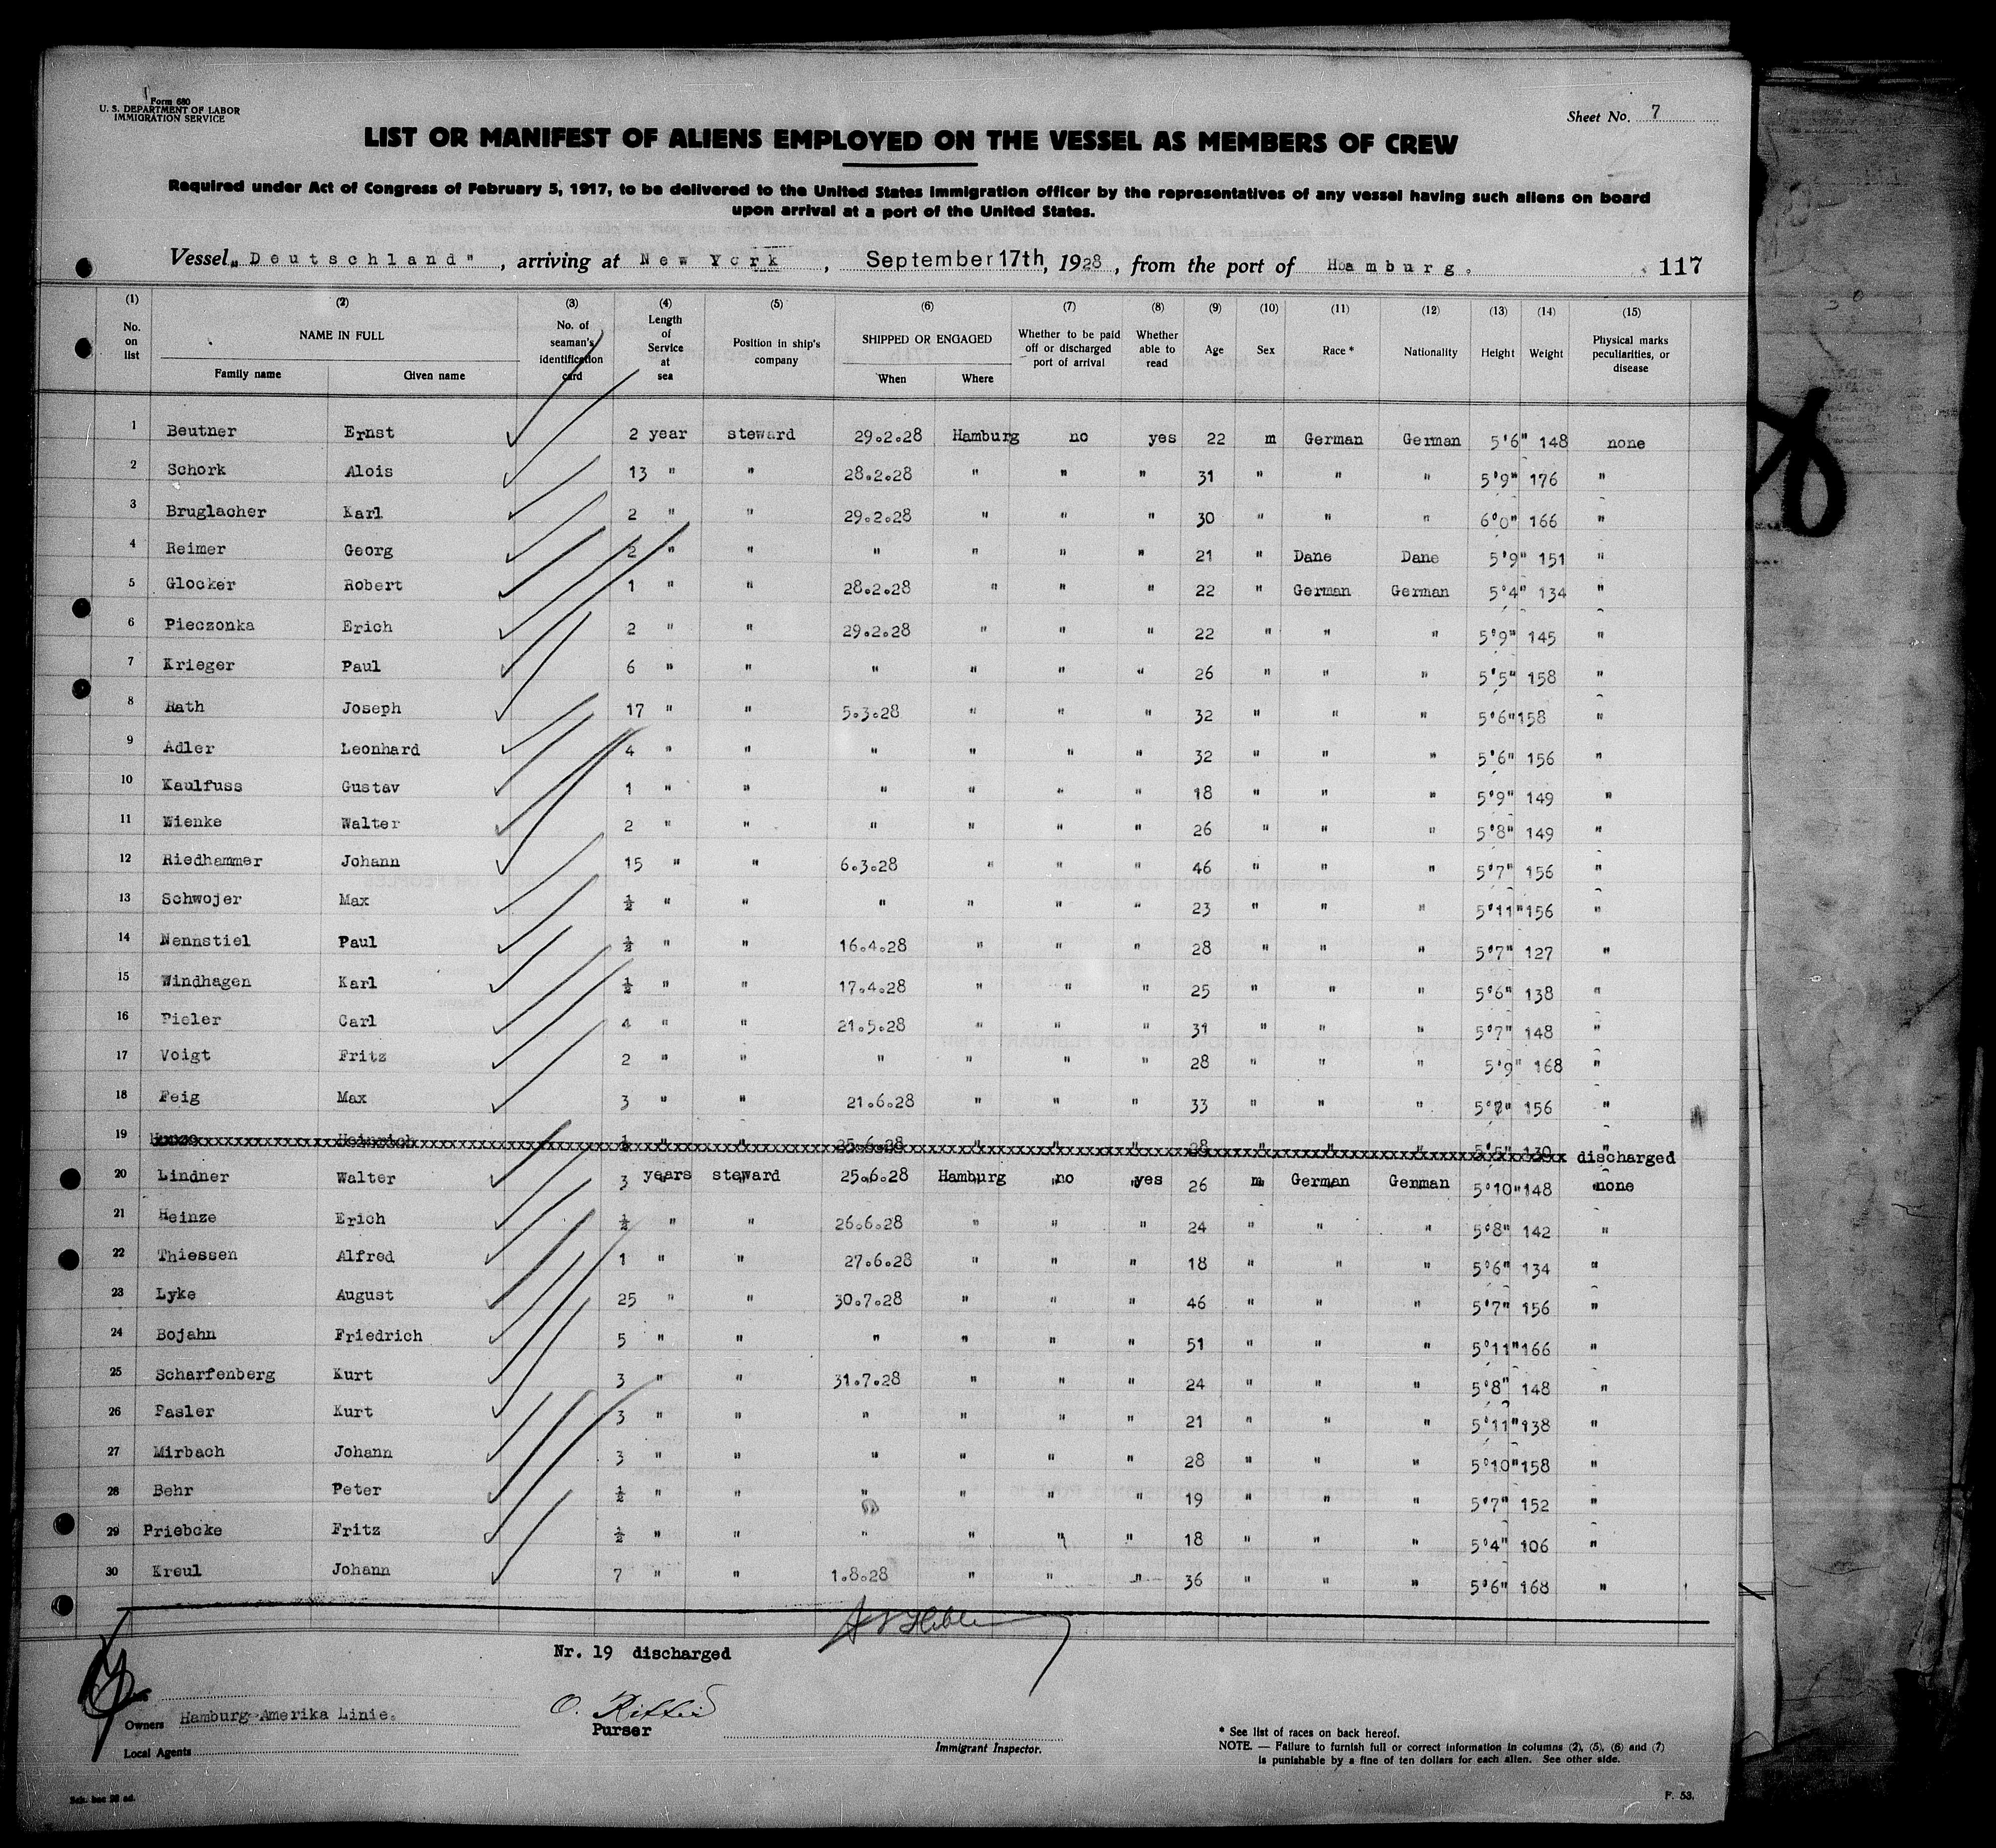 Form 680
U. S. DEPARTMENT OF LABOR
IMMIGRATION SERVICE
Sheet No. 7
LIST OR MANIFEST OF ALIENS EMPLOYED ON THE VESSEL AS MEMBERS OF CREW
Required under Act of Congress of February 5, 1917, to be delivered to the United States immigration officer by the representatives of any vessel having such aliens on board
upon arrival at a port of the United States.
Vessel „Deutschland", arriving at New York, September 17th, 1928, from the port of Hamburg. 117
(1) (2) (3) (4) (5) (6) (7) (8) (9) (10) (11) (12) (13) (14) (15)
No. on list NAME IN FULL Family name Given name No. of seaman's identification card Length of Service at sea Position in ship's company SHIPPED OR ENGAGED When Where Whether to be paid off or discharged port of arrival Whether able to read Age Sex Race * Nationality Height Weight Physical marks peculiarities, or disease
1 Beutner Ernst 2 year steward 29.2.28 Hamburg no yes 22 m German German 5'6" 148 none
2 Schork Alois 13 " " 28.2.28 " " " 31 " " " 5'9" 176 "
3 Bruglacher Karl 2 " " 29.2.28 " " " 30 " " " 6'0" 166 "
4 Reimer Georg 2 " " " " " " 21 " Dane Dane 5'9" 151 "
5 Glocker Robert 1 " " 28.2.28 " " " 22 " German German 5'4" 134 "
6 Pieczonka Erich 2 " " 29.2.28 " " " 22 " " " 5'9" 145 "
7 Krieger Paul 6 " " " " " " 26 " " " 5'5" 158 "
8 Rath Joseph 17 " " 5.3.28 " " " 32 " " " 5'6" 158 "
9 Adler Leonhard 4 " " " " " " 32 " " " 5'6" 156 "
10 Kaulfuss Gustav 1 " " " " " " 18 " " " 5'9" 149 "
11 Wienke Walter 2 " " " " " " 26 " " " 5'8" 149 "
12 Riedhammer Johann 15 " " 6.3.28 " " " 46 " " " 5'7" 156 "
13 Schwojer Max ½ " " " " " " 23 " " " 5'11" 156 "
14 Nennstiel Paul ½ " " 16.4.28 " " " 28 " " " 5'7" 127 "
15 Windhagen Karl ½ " " 17.4.28 " " " 25 " " " 5'6" 138 "
16 Pieler Carl 4 " " 21.5.28 " " " 31 " " " 5'7" 148 "
17 Voigt Fritz 2 " " " " " " 28 " " " 5'9" 168 "
18 Feig Max 3 " " 21.6.28 " " " 33 " " " 5'7" 156 "
19 Heinrich ½ " " 25.6.28 " " " 28 " " " 5'5" 130 " discharged
20 Lindner Walter 3 years steward 25.6.28 Hamburg no yes 26 m German German 5'10" 148 none
21 Heinze Erich ½ " " 26.6.28 " " " 24 " " " 5'8" 142 "
22 Thiessen Alfred 1 " " 27.6.28 " " " 18 " " " 5'6" 134 "
23 Lyke August 25 " " 30.7.28 " " " 46 " " " 5'7" 156 "
24 Bojahn Friedrich 5 " " " " " " 51 " " " 5'11" 166 "
25 Scharfenberg Kurt 3 " " 31.7.28 " " " 24 " " " 5'8" 148 "
26 Pasler Kurt 3 " " " " " " 21 " " " 5'11" 138 "
27 Mirbach Johann 3 " " " " " " 28 " " " 5'10" 158 "
28 Behr Peter ½ " " " " " " 19 " " " 5'7" 152 "
29 Priebcke Fritz ½ " " " " " " 18 " " " 5'4" 106 "
30 Kreul Johann 7 " " 1.8.28 " " " 36 " " " 5'6" 168 "
Nr. 19 discharged
Owners Hamburg-Amerika Linie.
O. Ritter
Purser
Local Agents
Immigrant Inspector.
* See list of races on back hereof.
NOTE. — Failure to furnish full or correct information in columns (2), (5), (6) and (7)
is punishable by a fine of ten dollars for each alien. See other side.
F. 53.